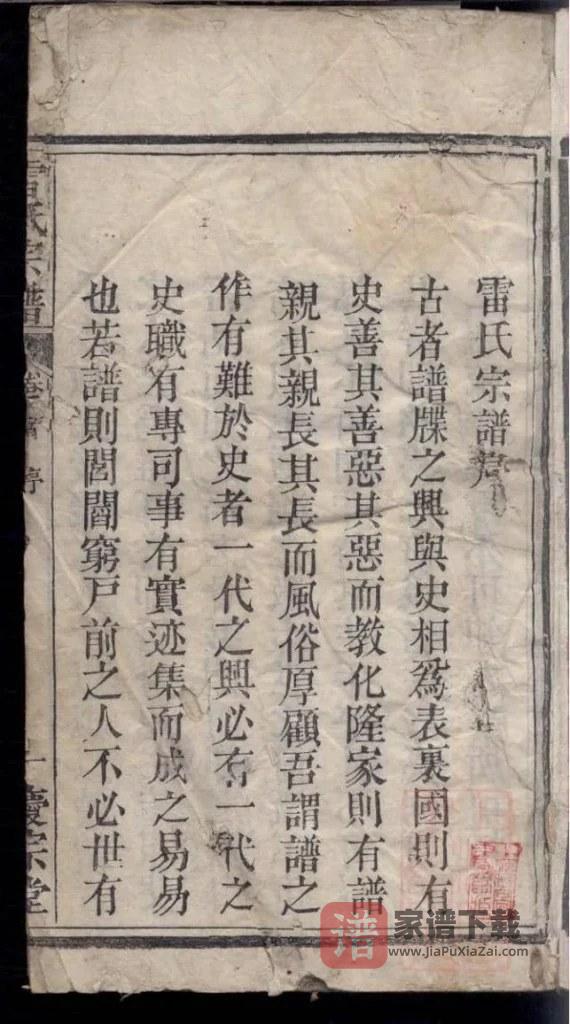 雷氏宗譜序
古者譜牒之興與史相為表裏國則有
史善其善惡其惡而教化隆家則有譜
親其親長其長而風俗厚顧吾謂譜之
作有難於史者一代之興必有一代之
史職有專司事有實迹集而成之易易
也若譜則閭閻窮戸前之人不必世有
雷氏宗譜
卷首
序
一
慶宗堂
譜
家谱下载
www.JiaPuXiaZai.com